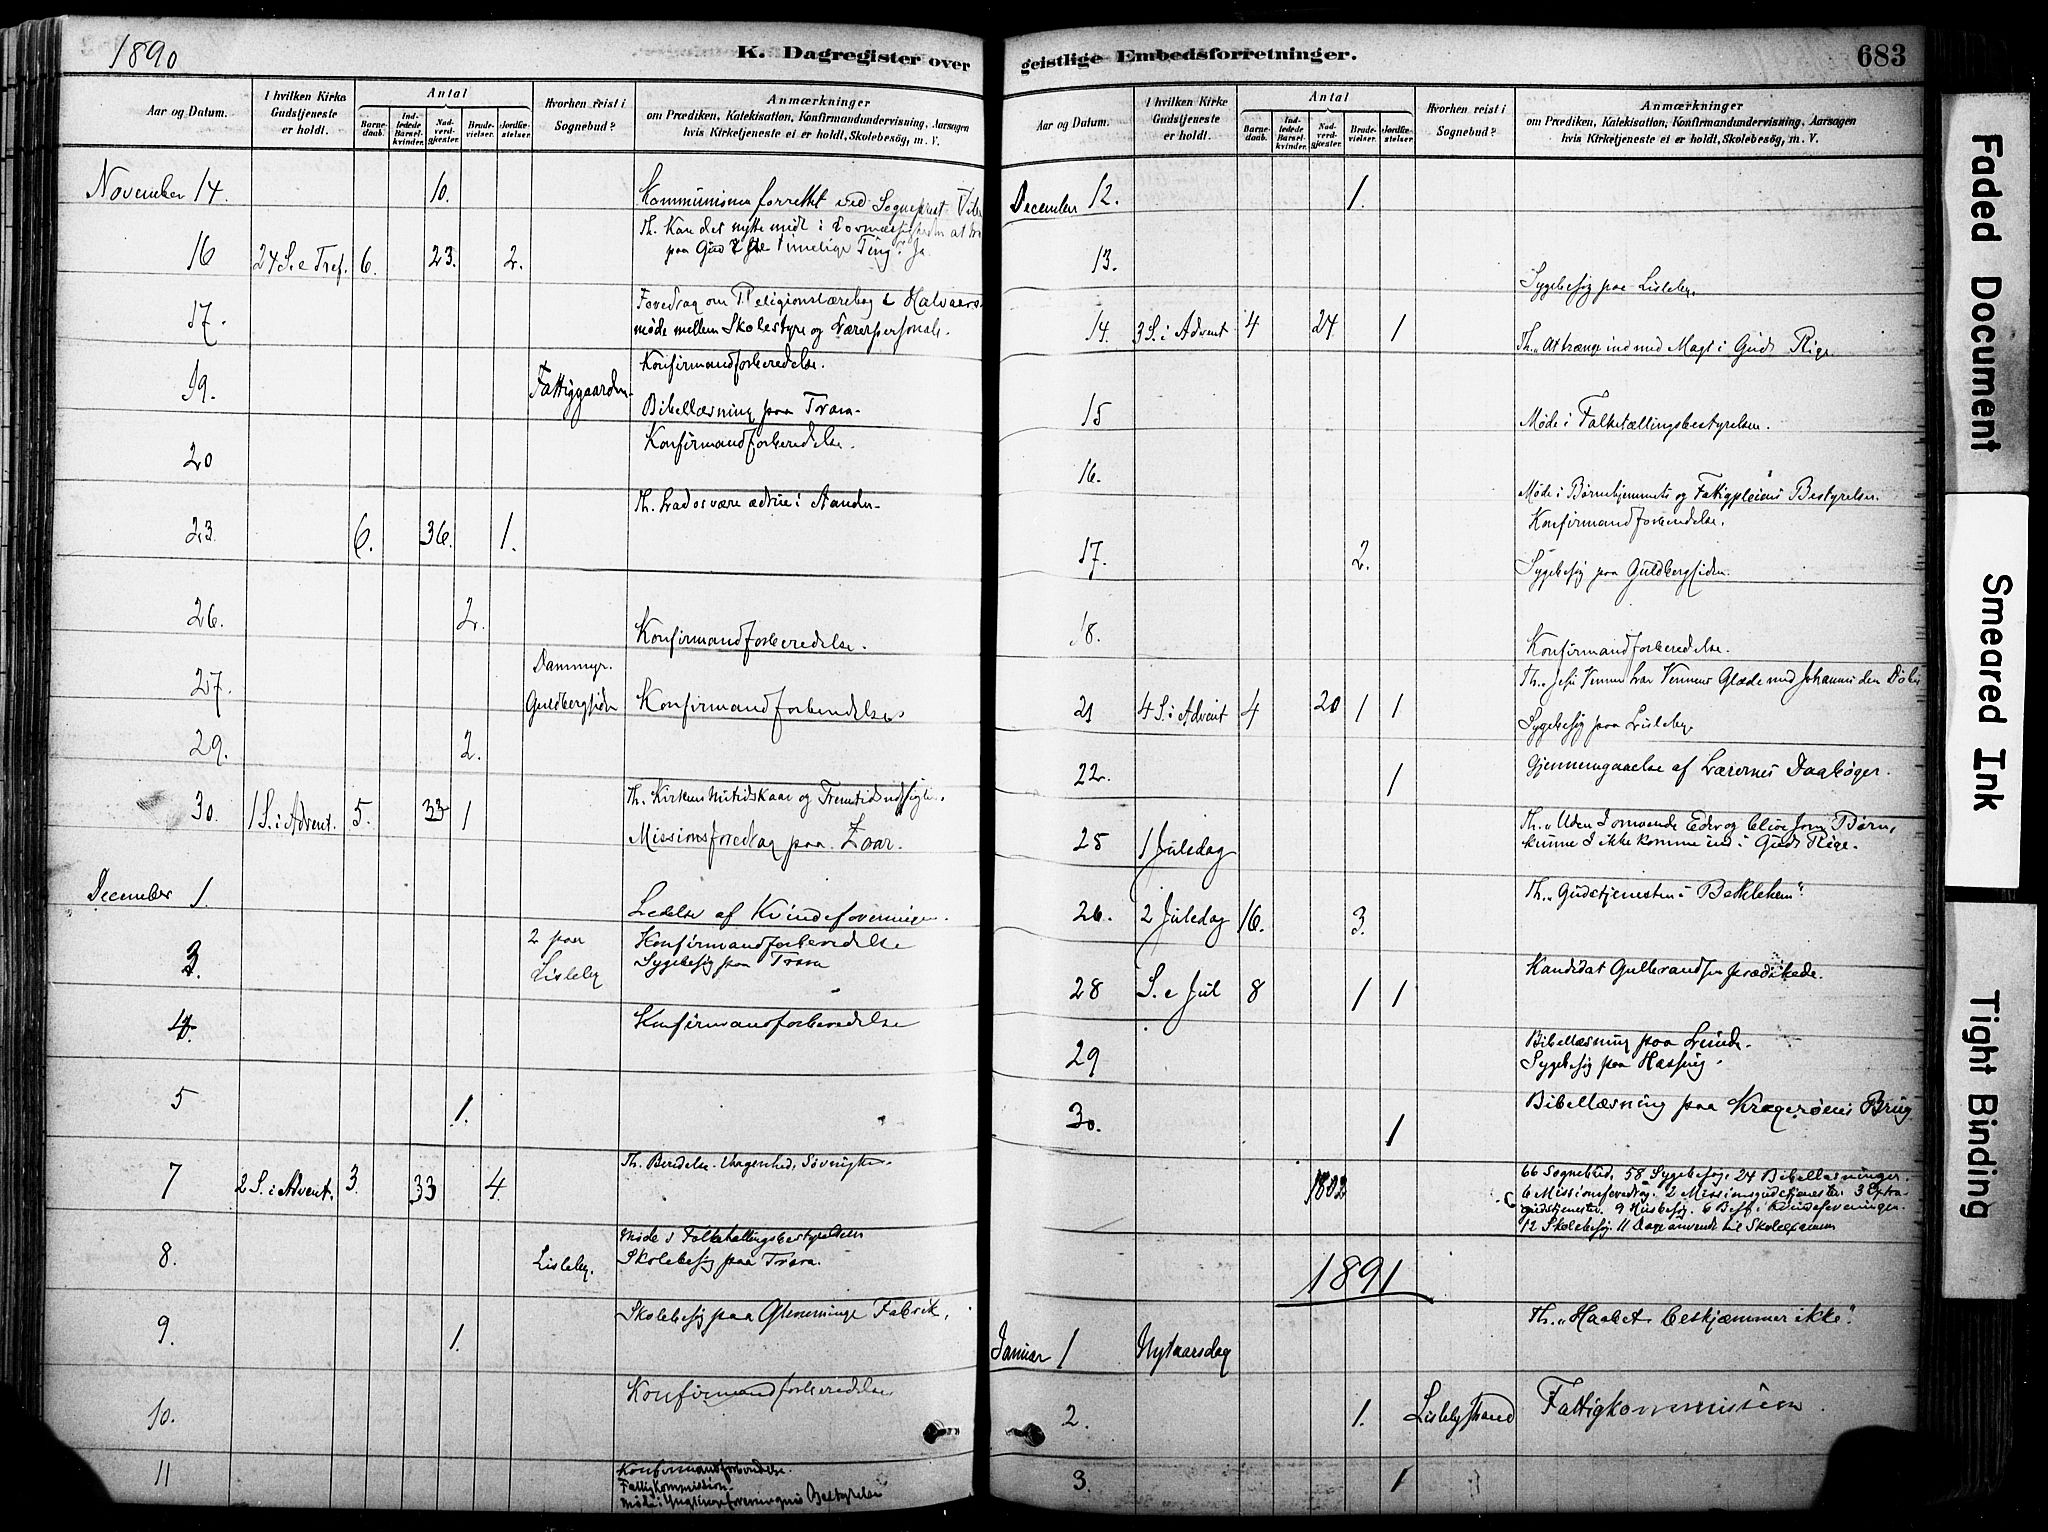 1890
K. Dagregister over
Aar og Datum.
I hvilken Kirke Gudstjeneste er holdt.
Antal
Barnedaab.
Indledede Barselkvinder.
Nadverdgjester.
Brudevielser.
Jordfæstelser.
Hvorhen reist i Sognebud?
Anmærkninger
om Prædiken, Katekisation, Konfirmandundervisning, Aarsagen
hvis Kirketjeneste ei er holdt, Skolebesög, m. V.
November 14. 10. Kommunion forrettet ved Sogneprest
16 24 S. e Tref. 6. 23. 2. Th. Kan det nytte midt i
paa Gud timelige Ting. Ja
17. Foredrag om Religionslærebog i
møde mellem Skolestyre og Lærerpersonale.
19. Fattiggaarden Konfirmandforberedelse.
Bibellæsning paa Trara.
20 Konfirmandforberedelse.
23. 6. 36. 1. Th. Lad os være ædrue i Aanden.
26. 2. Konfirmandforberedelse.
27. Dammyr.
Guldbergsiden Konfirmandforberedelse
29. 2.
30. 1 S. i Advent. 5. 33 1 Th. Kirkens Nutidskaar og Fremtidsudsigter.
Missionsforedrag paa Zoar.
December 1. Ledelse af Kvindeforeningen.
3. 2 paa Lisleby Konfirmandforberedelse
Sygebesög paa Trara
4. Konfirmandforberedelse
5 1.
7 2 S. i Advent. 3. 33 4. Th. Beredelse. Vaagenhed.
8. Lisleby. Møde i Folketællingsbestyrelsen
Skolebesög paa Trara.
9. 1. Skolebesög paa Glemminge Fabrik.
10. Konfirmandforberedelse
11 Konfirmandforberedelse.
Fattigkommission.
Møde i Ynglingeforeningens Bestyrelse
geistlige Embedsforretninger.
683
Aar og Datum.
I hvilken Kirke Gudstjeneste er holdt.
Antal
Barnedaab.
Indledede Barselkvinder.
Nadverdgjester.
Brudevielser.
Jordfæstelser.
Hvorhen reist i Sognebud?
Anmærkninger
om Prædiken, Katekisation, Konfirmandundervisning, Aarsagen
hvis Kirketjeneste ei er holdt, Skolebesög, m. V.
December 12. 1.
13. Sygebesög paa Lisleby.
14. 3 S. i Advent 4 24 1 Th. "At trænge ind med Magt i Guds Rige.
15 Møde i Folketællingsbestyrelsen.
16. Møde i Børnehjemmets og Fattigpleiens Bestyrelse.
Konfirmandforberedelse.
17. 2. Sygebesög paa Guldbergsiden.
18. Konfirmandforberedelse.
21 4 S. i Advent 4 20 1 1 Th. "Jesu Venner har Vennens Glæde med Johannes den Døber
Sygebesög paa Lisleby.
22. 1 Gjennemgaaelse af Lærernes Dagbøger.
25 1 Juledag Th. "Uden I omvende Eder og blive som Børn,
kunne I ikke komme ind i Guds Rige.
26. 2 Juledag 16. 3. Th. "Gudstjenesten i Bethlehem".
28 S. e Jul 8 1 1 Kandidat Gulbrandsen prædikede.
29 Bibellæsning paa Lunde.
Sygebesög paa Hassing.
30. 1 Bibellæsning paa Kragerøens Brug
1802 66 Sognebud, 58 Sygebesøg, 24 Bibellæsninger.
6 Missionsforedrag. 2 Missionsgudstjenester. 3 Extra-
gudstjenester. 9 Husbesög. 6 Kvindeforeningen.
12 Skolebesög. 11 Dage anvendt til Skoleexamen
1891
Januar 1 Nytaarsdag Th. "Haabet beskjæmmer ikke".
2. 1. Lisleby Strand Fattigkommission.
3. 1
Faded Document
Smeared Ink
Tight Binding